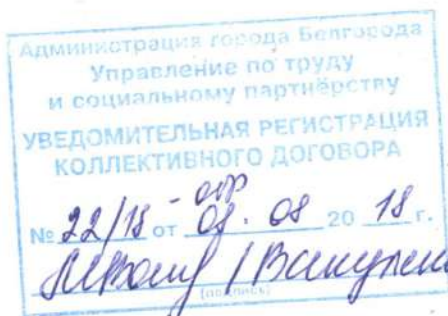 Администрация города Белгорода
Управление по труду
и социальному партнёрству
УВЕДОМИТЕЛЬНАЯ РЕГИСТРАЦИЯ
КОЛЛЕКТИВНОГО ДОГОВОРА
№ 22/18 от 08 20 18 г.
(подпись)